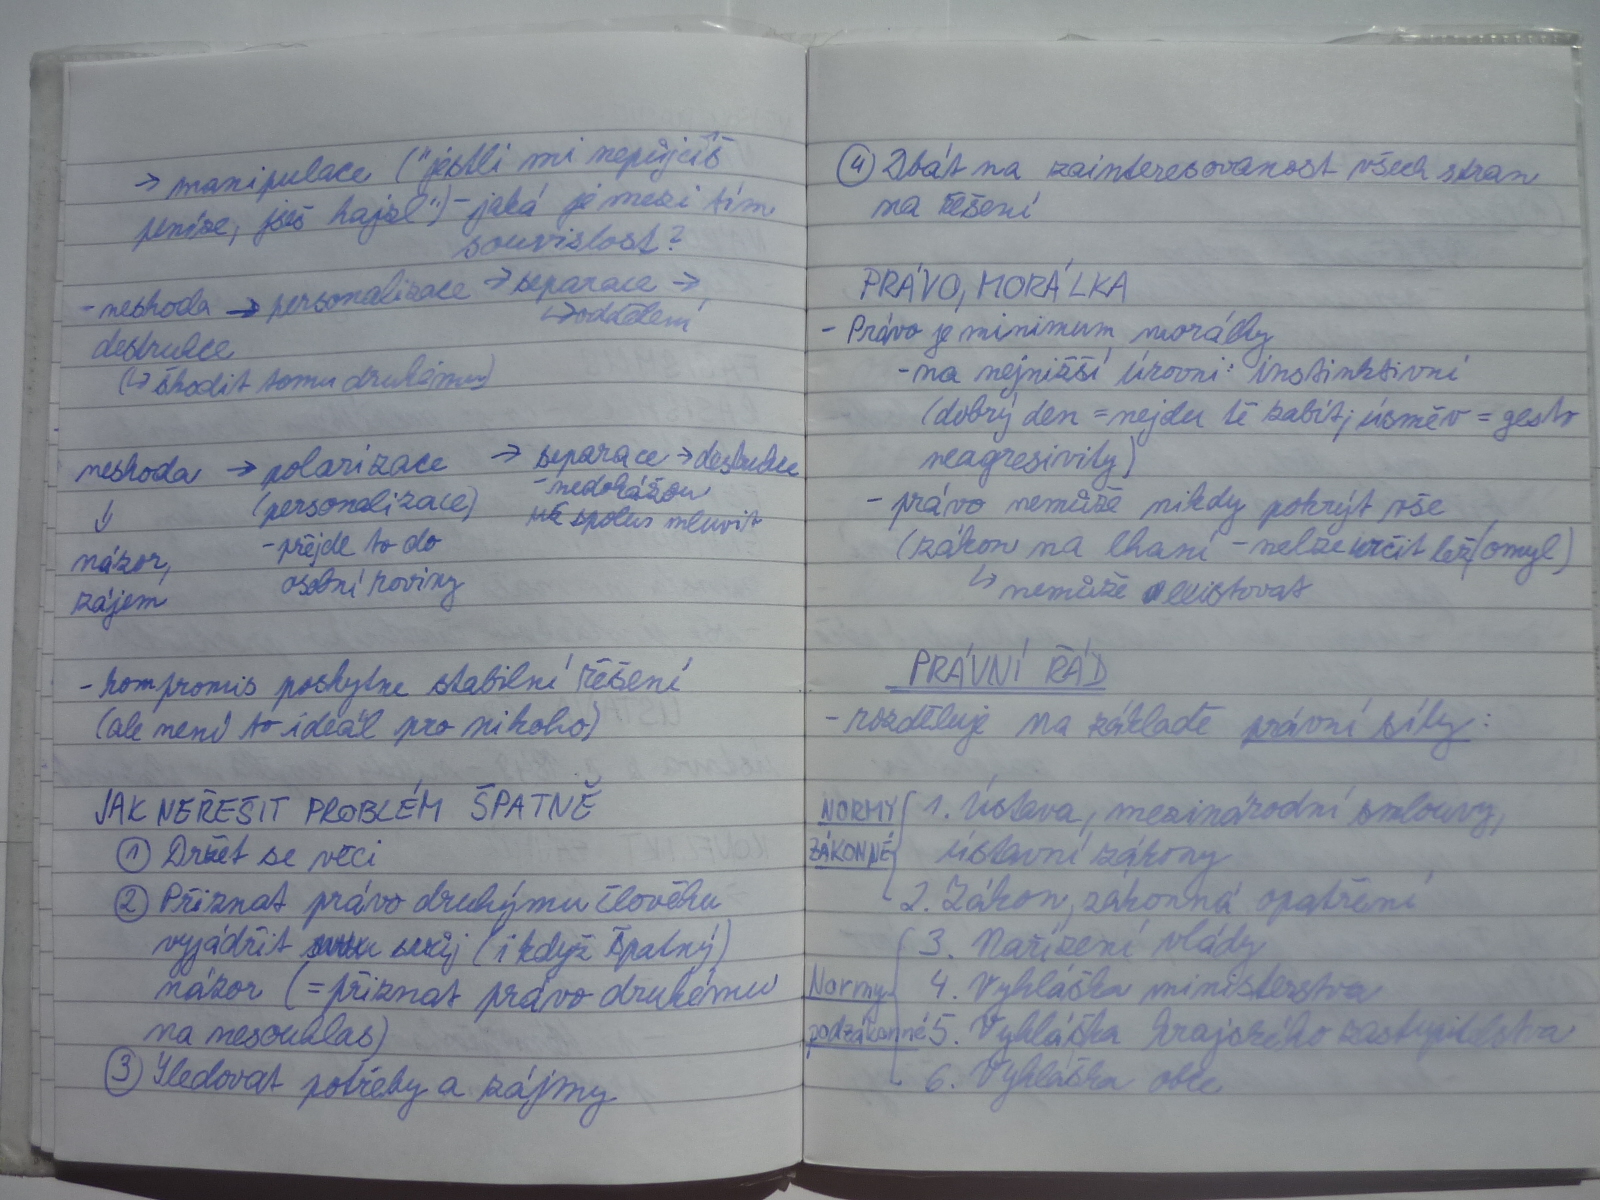 → manipulace ("jestli mi nepůjčíš
peníze, jseš hajzl") - jaká je mezi tím
souvislost?
- neshoda → personalizace → separace →
↳ oddělení
destrukce
(↳ škodit tomu druhému)
neshoda → polarizace → separace → destrukce
↓ (personalizace) - nedokážou
spolu mluvit
názor, - přejde to do
zájem osobní roviny
- kompromis poskytne stabilní řešení
(ale není to ideál pro nikoho)
JAK NEŘEŠIT PROBLÉM ŠPATNĚ
① Držet se věci
② Přiznat právo druhýmu člověku
vyjádřit svůj (i když špatný)
názor (= přiznat právo druhému
na nesouhlas)
③ Sledovat potřeby a zájmy
④ Dbát na zainteresovanost všech stran
na řešení
PRÁVO, MORÁLKA
- Právo je minimum morálky
- na nejnižší úrovni: instinktivní
(dobrý den = nejdu tě zabít; úsměv = gesto
neagresivity)
- právo nemůže nikdy pokrýt vše
(zákon na lhaní - nelze určit lež/omyl)
↳ nemůže existovat
PRÁVNÍ ŘÁD
- rozděluje na základě právní síly:
NORMY 1. Ústava, mezinárodní smlouvy,
ZÁKONNÉ ústavní zákony
2. Zákon, zákonná opatření
3. Nařízení vlády
Normy 4. Vyhláška ministerstva
podzákonné 5. Vyhláška krajského zastupitelstva
6. Vyhláška obce